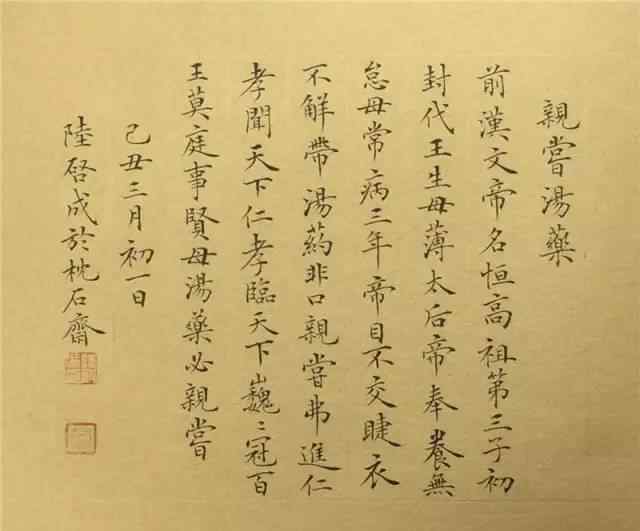 親嘗湯藥
前漢文帝名恒高祖第三子初
封代王生母薄太后帝奉養無
怠母常病三年帝目不交睫衣
不解帶湯药非口親嘗弗進仁
孝聞天下仁孝臨天下巍〻冠百
王莫庭事賢母湯藥必親嘗
己丑三月初一日
陸啓成於枕石齋